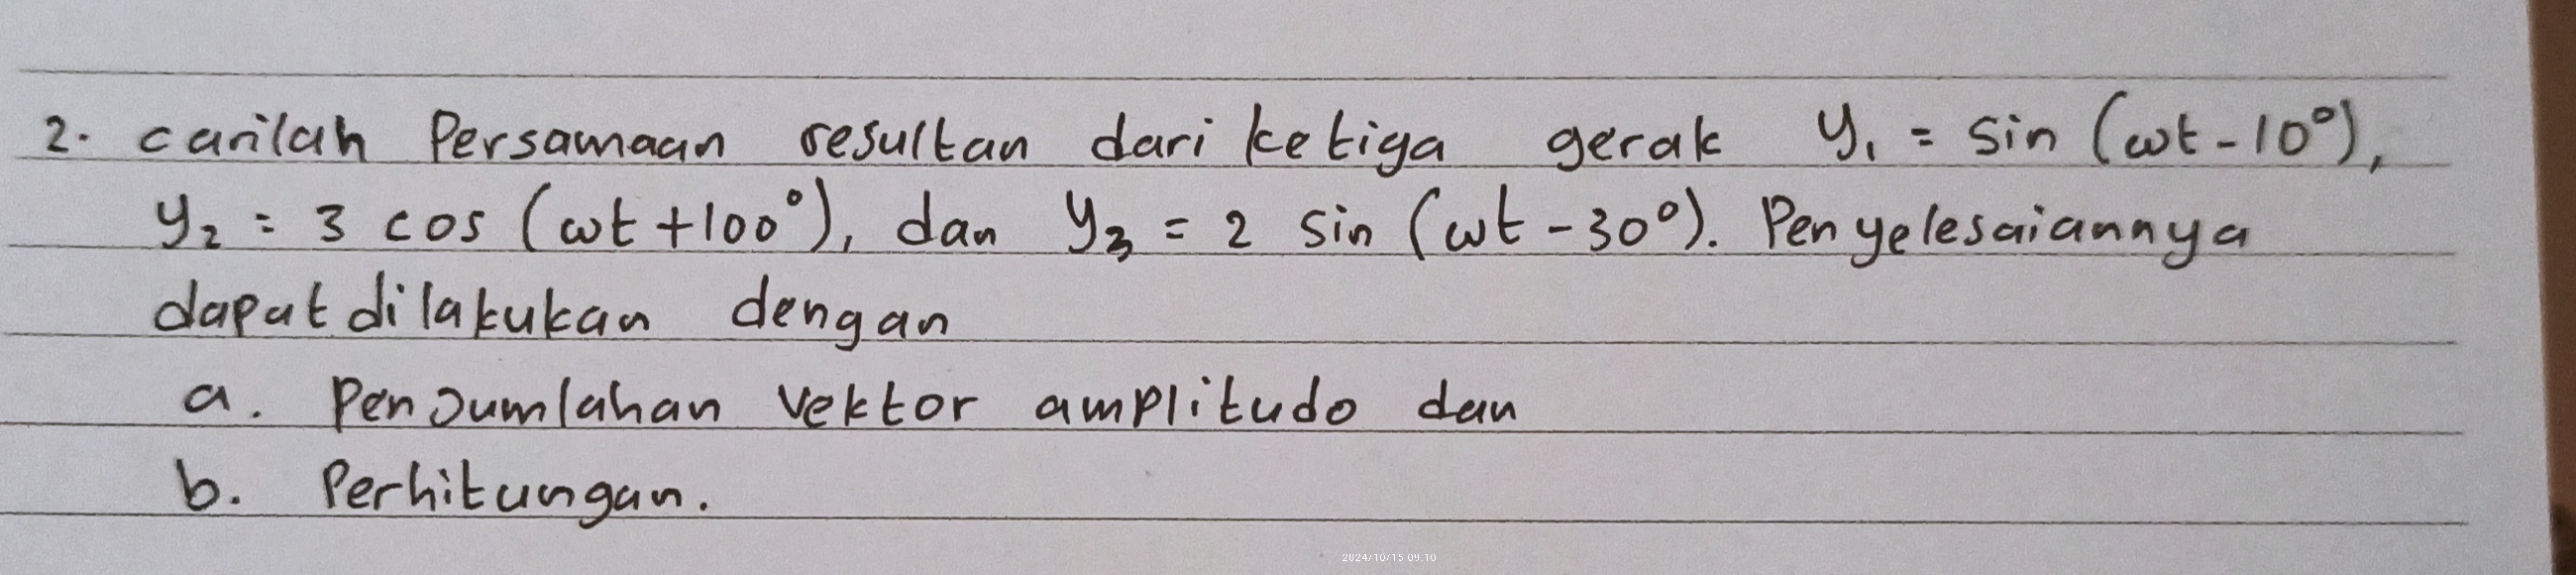 2. carilah Persamaan resultan dari ketiga gerak y₁ = sin (ωt - 10°),
y₂ = 3 cos (ωt + 100°), dan y₃ = 2 sin (ωt - 30°). Penyelesaiannya
dapat dilakukan dengan
a. Penjumlahan vektor amplitudo dan
b. Perhitungan.
2024/10/15 09:10